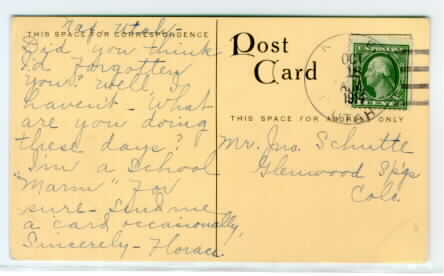 Utah-
THIS SPACE FOR CORRESPONDENCE
Did you think
I'd forgotten
you? Well, I
haven't - What
are you doing
these days?
I'm a School
"Marm" for
sure - Send me
a card occasionally,
Sincerely - Florace
Post
Card
THIS SPACE FOR ADDRESS ONLY
OCT
18
A.M.
U.S. POSTAGE
CENT
Mr. Jno. Schutte
Glenwood Sp'gs
Colo.